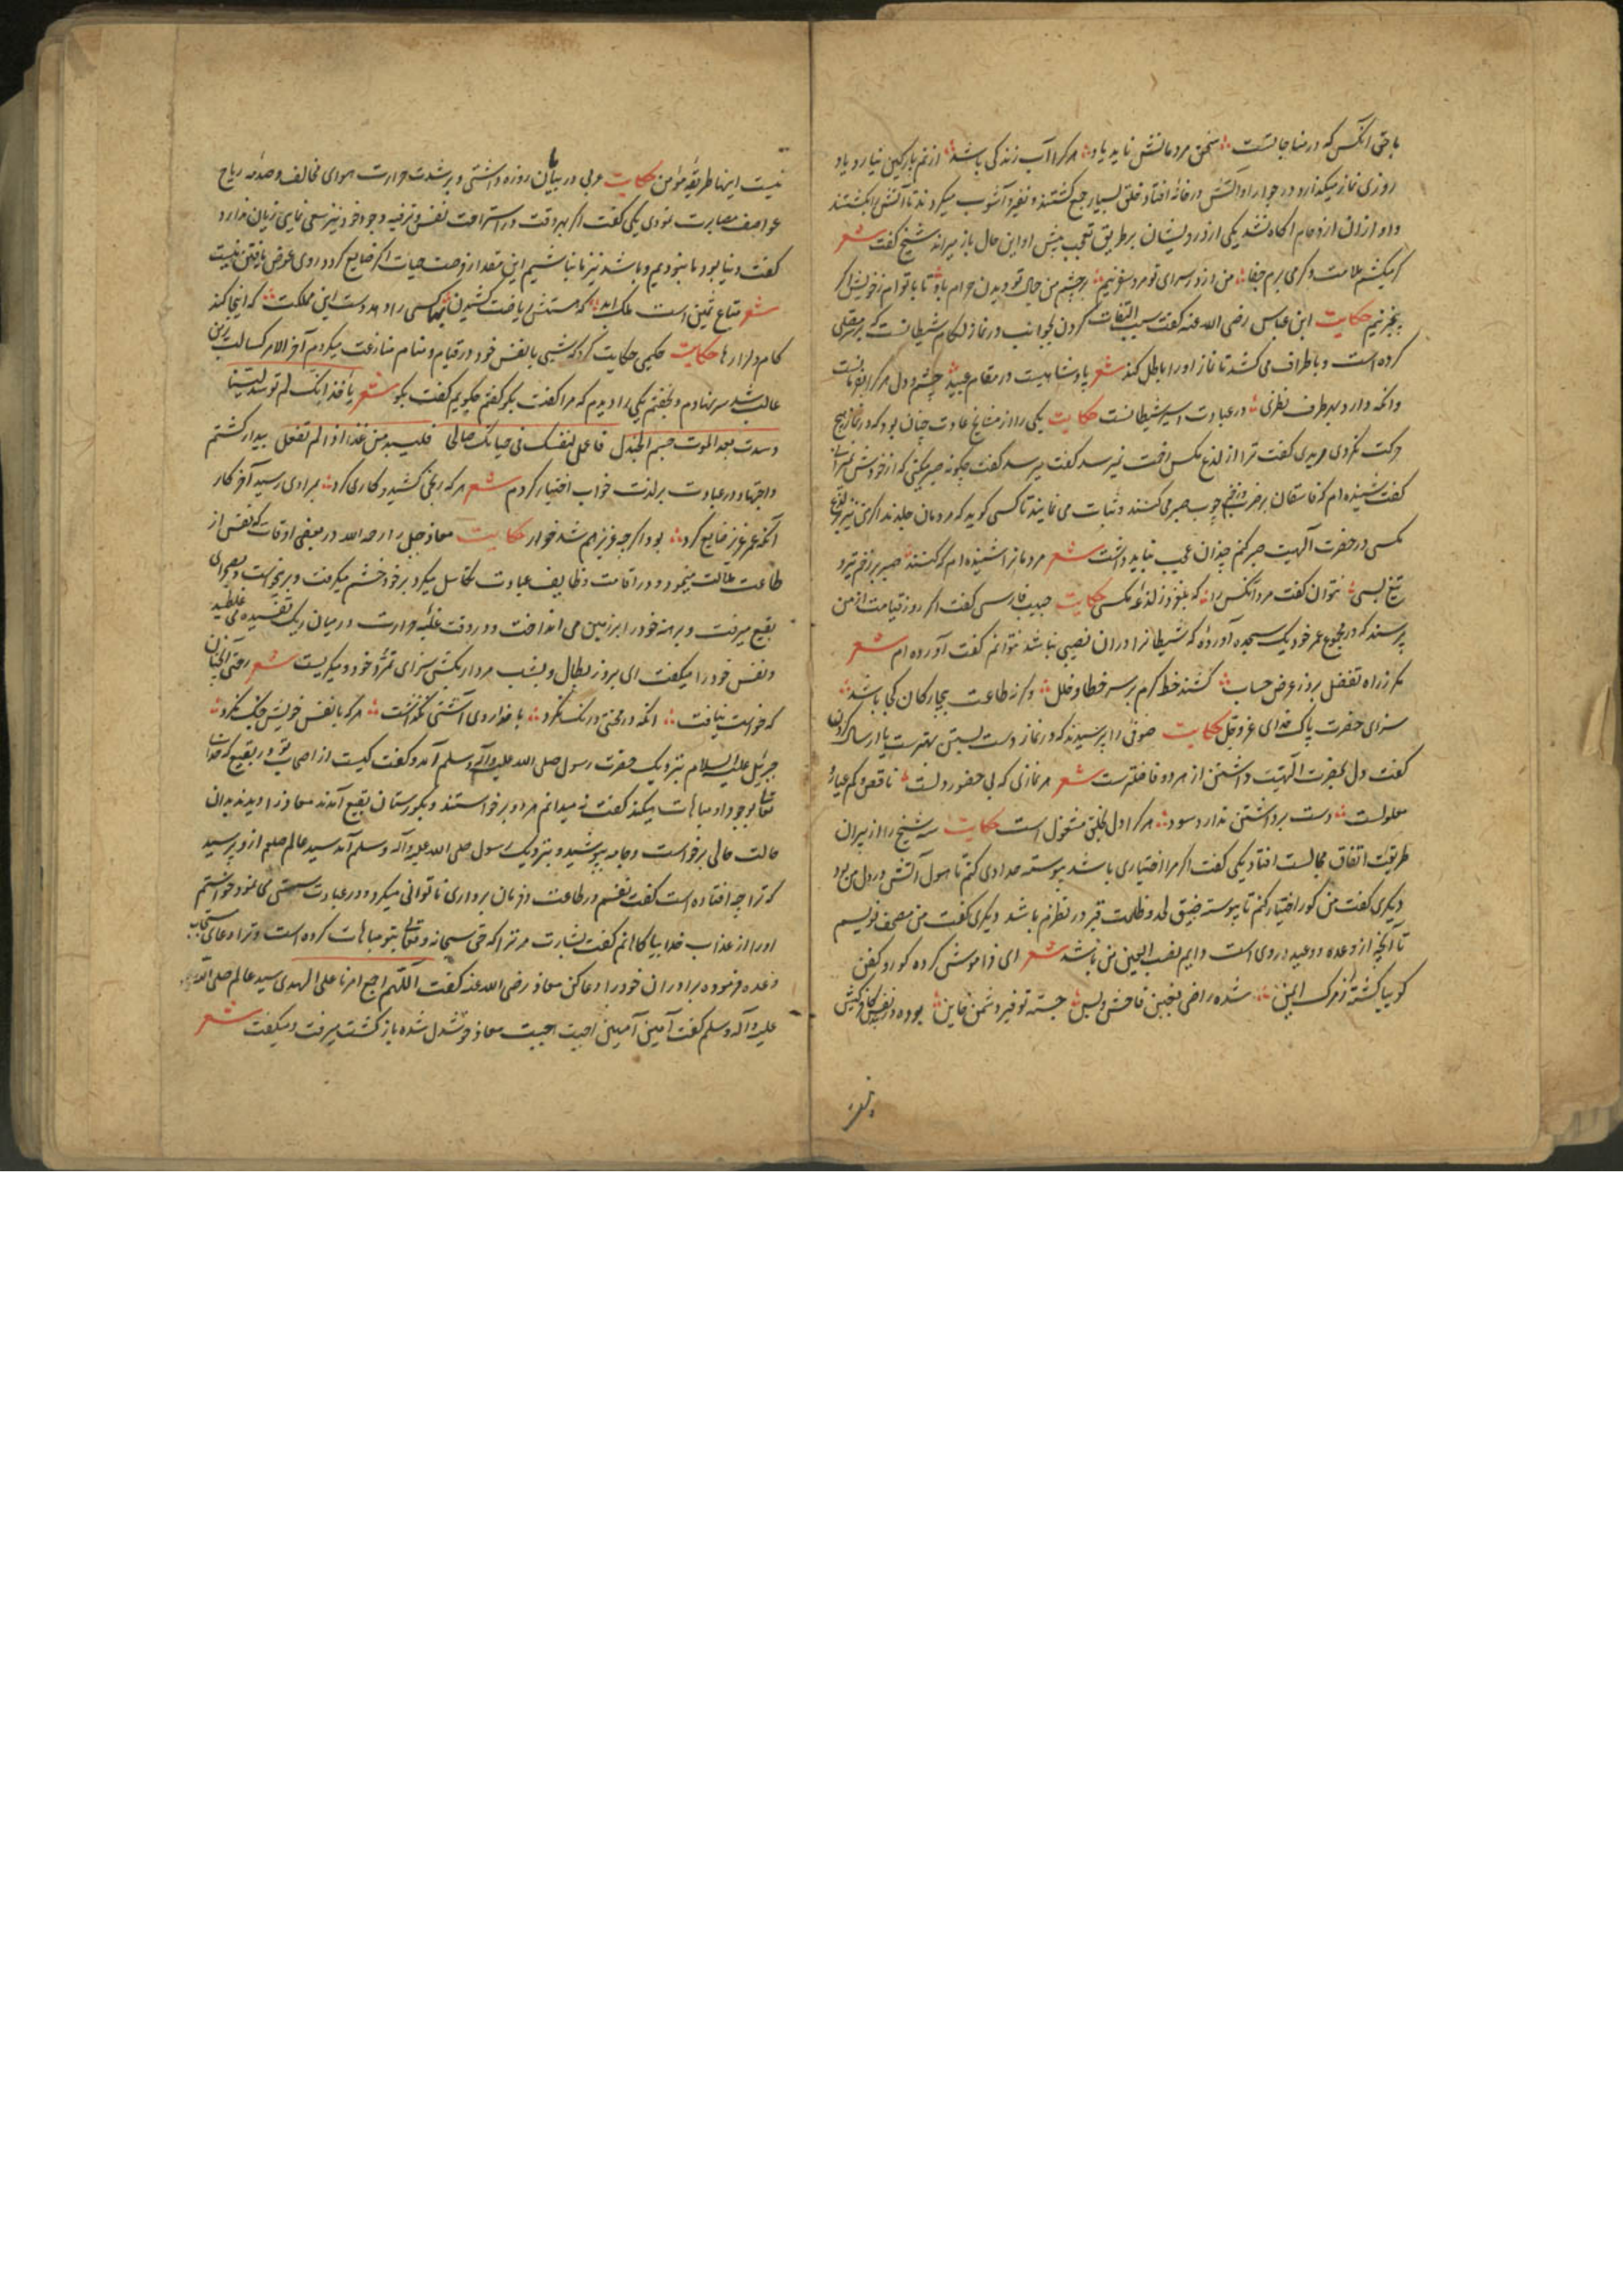 با حق آنکس که در مناجاتست سخن مردمانش ناید یاد هر کرا آب زندگی باشد از نم پارکین نیارد یاد
روزی نماز میگذارد و در جوار او آتش در خانه افتاد خلق بسیار جمع گشتند و نفیر و آشوب میکردند تا آتش را بکشتند
و او از آن ازدحام آگاه نشد یکی از درویشان بر طریق تعجب پیش او این حال باز میراند شیخ گفت شعر
گر میکشم ملامت و گر می برم جفا من از در سرای تو مرد سفر نیم بر چشم من جمال تو دیدن حرام باد تا با توام ز خویش اگر
بیخبر نیم حکایت ابن عباس رضی الله عنه گفت سبب التفات کردن بجوانب در نماز لکام شیطانست که بر سر مصلی
کرده است و باطراف می کشد تا نماز او را باطل کند شعر پادشاهیست در مقام عبید چشم و دل هر کرا بفرمانست
وانکه دارد بهر طرف نظری در عبادت اسیر شیطانست حکایت یکی را از مشایخ عادت چنان بود که در نماز هیچ
حرکت نکردی مریدی گفت ترا از لذع مکس زحمت نمیرسد گفت میرسد گفت چگونه صبر میکنی که از خودش نمیرانی
گفت شنیده ام که فاسقان بر ضرب زخم چوب صبر می کنند و ثبات می نمایند تا کسی گوید که مردمان جلدند اگر من نیز بر لذع
مکسی در حضرت آلهیت صبر کنم چندان عجب نباید داشت شعر مردمانرا شنیده ام که کنند صبر بر زخم تیر و
تیغ بسی نتوان گفت مرد آنکس را که بلغزد ز لذعه مکسی حکایت حبیب فارسی گفت اگر روز قیامت از من
پرسند که در مجموع عمر خود یک سجده آورده که شیطانرا در آن نصیبی نباشد نتوانم گفت آورده ام شعر
مگر ز راه تفضل بروز عرض حساب کشند خط کرم بر سر خطا و خلل و گرنه طاعت بیچارگان کجا باشد
سزای حضرت پاک خدای عز و جل حکایت صوفی را پرسیدند که در نماز دست بستن بهترست یا ارسال کردن
گفت دل بحضرت آلهیت داشتن از هر دو فاضلترست شعر هر نمازی که بی حضور دلست ناقص و کم عیار و
معلولست دست برداشتن ندارد سود هر کرا دل بخلق مشغول است حکایت سه شیخ را از پیران
طریقت اتفاق مجالست افتاد یکی گفت اگر مرا اختیاری باشد پیوسته حدادی کنم تا هول آتش در دل من بود
دیگری گفت من گور اختیار کنم تا پیوسته ضیق لحد و ظلمت قبر در نظرم باشد دیگری گفت من مصحف نویسم
تا آنچه از وعده و وعید در وی است دایم نصب العین من باشد شعر ای فراموش کرده گور و کفن
گوییا گشته ز مرگ ایمن شده راضی بغبن فاحش و بس جسته توفیر دشمن خاین بوده در نفس کافر کیش
نیست اینها طریقه مؤمن حکایت عربی در بیابان روزه داشتی و بر شدت حرارت هوای مخالف و صدمه ریاح
عواصف مصابرت نمودی یکی گفت اگر بهر وقت در استراحت نفس و ترفیه وجود خود نیز سعی نمایی زیان ندارد
گفت دنیا بود ما نبودیم و باشد نیز ما نباشیم این مقدار فرصت حیات اگر ضایع گردد روی عوض یافتن نیست
شعر متاع ثمین است ملک ابد که هستش ریاضت کشیدن بها کسی را دهد دست این مملکت که اینجا کند
کام دل را رها حکایت حکیمی حکایت کرد که شبی با نفس خود در قیام و منام منازعت میکردم آخر الامر کسالت بر من
غالب شد سر بنهادم و بخفتم یکی را دیدم که مرا گفت بگو گفتم چگویم گفت بگو شعر یا خد انک لم توسد لینا
وسدت بعد الموت صم الجندل فاعمل لنفسک فی حیاتک صالحا فلتندمن غدا اذ الم تفعل بیدار گشتم
و اجتهاد در عبادت بر لذت خواب اختیار کردم شعر هر که رنجی کشید و کاری کرد بمرادی رسید آخر کار
آنکه عمر عزیز ضایع کرد بود اگرچه عزیز هم شد خوار حکایت معاذ جبل را رحمه الله در بعضی اوقات که نفس از
طاعت ملالت مینمود و در اقامت وظایف عبادت تکاسل میکرد بر خود خشم میگرفت و بر میخواست و بصحرای
بقیع میرفت و برهنه خود را بر زمین می انداخت و در وقت غلبه حرارت در میان ریگ تفسیده می غلطید
و نفس خود را میگفت ای بروز بطال و بشب مردار بکش سزای تمرد خود و میگریست شعر رحمتی آنچنان
که خواست نیافت آنکه در محنتی درنک نکرد با خدا روی آشتی نگذاشت هر که با نفس خویش جنک نکرد
جبرئیل علیه السلام بنزدیک حضرت رسول صلی الله علیه و آله و سلم آمد و گفت کیست از اصحاب تو در بقیع که خدای
تعالی بوجود او مباهات میکند گفت نه میدانم هر دو برخواستند و بگورستان بقیع آمدند معاذ را دیدند بدان
حالت حالی برخواست و جامه بپوشید و بنزدیک رسول صلی الله علیه و آله و سلم آمد سید عالم صلعم از و پرسید
که ترا چه افتاده است گفت نفسم در طاعت و فرمان برداری ناتوانی میکرد و در عبادت سستی می نمود خواستم
او را از عذاب خدا بیاگاهانم گفت بشارت مر ترا که حق سبحانه و تعالی بتو مباهات کرده است و ترا دعای مستجاب
وعده فرموده برادران خود را دعا کن معاذ رضی الله عنه گفت اللهم اجمع امرنا علی الهدی سید عالم صلی الله
علیه و آله و سلم گفت آمین آمین اجیبت اجیبت معاذ خوشدل شده باز گشت میرفت و میگفت شعر